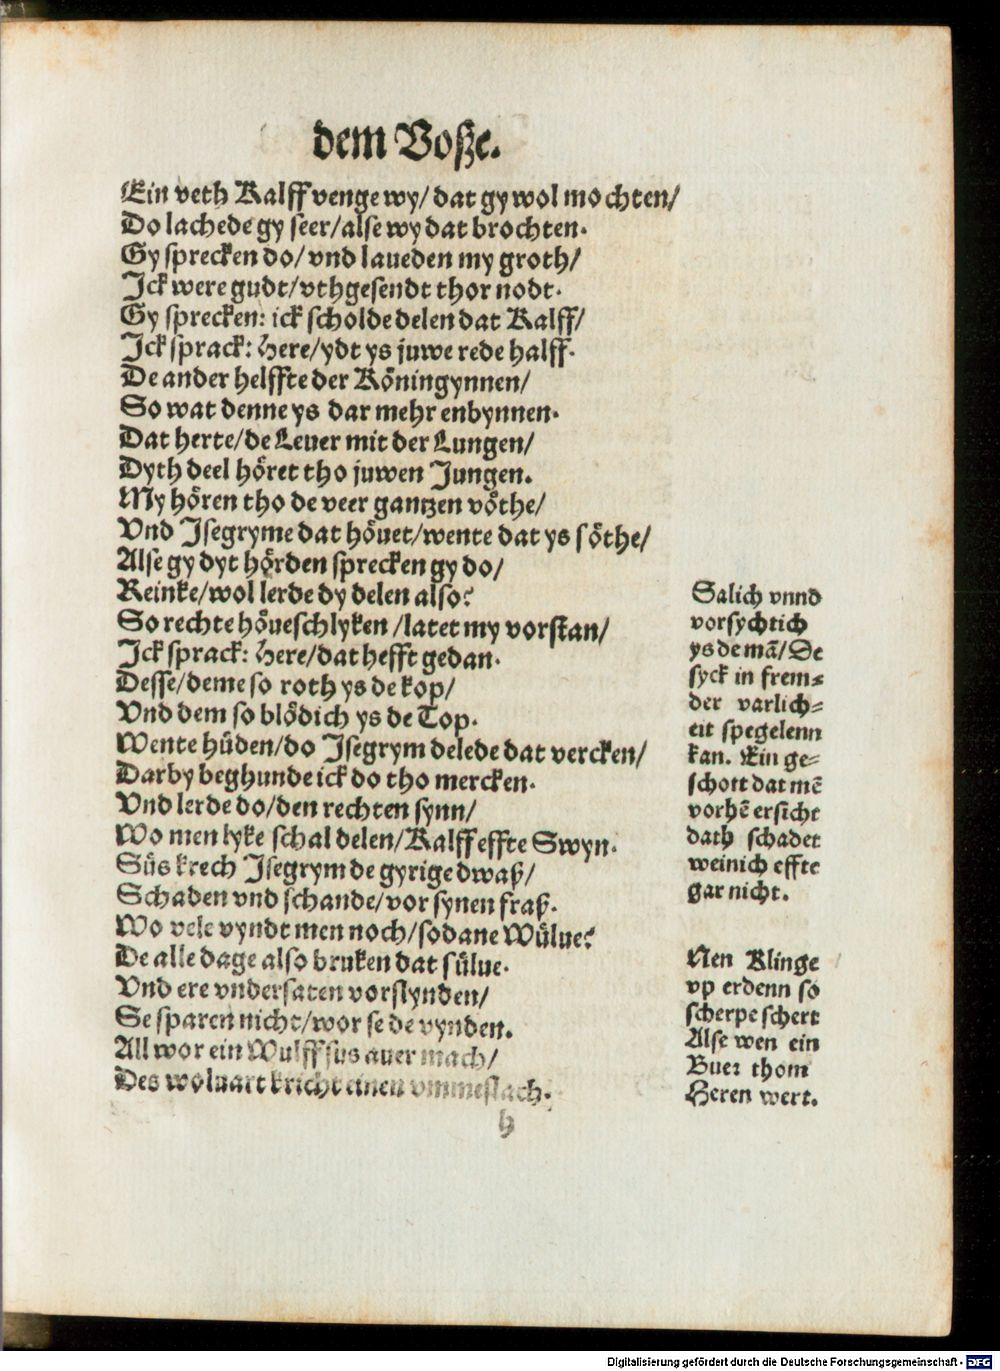 dem Voße.
Ein veth Kalff venge wy/ dat gy wol mochten/
Do lachede gy seer/alse wy dat brochten.
Gy sprecken do/ vnd laueden my groth/
Jck were gudt/vthgesendt thor nodt.
Gy sprecken: ick scholde delen dat Kalff/
Jck sprack: Here/ydt ys juwe rede halff.
De ander helffte der Köningynnen/
So wat denne ys dar mehr enbynnen.
Dat herte/de Leuer mit der Lungen/
Dyth deel höret tho juwen Jungen.
My hören tho de veer gantzen vöthe/
Vnd Jsegryme dat höuet/wente dat ys söthe/
Alse gy dyt hörden sprecken gy do/
Reinke/wol lerde dy delen also?
So rechte höueschlyken /latet my vorstan/
Jck sprack: Here/dat hefft gedan.
Desse/deme so roth ys de kop/
Vnd dem so blödich ys de Top.
Wente hüden/do Jsegrym delede dat vercken/
Darby beghunde ick do tho mercken.
Vnd lerde do/den rechten synn/
Wo men lyke schal delen/Kalff effte Swyn.
Süs krech Jsegrym de gyrige dwaß/
Schaden vnd schande/vor synen fraß.
Wo vele vyndt men noch/sodane Wülue?
De alle dage also bruken dat sülue.
Vnd ere vndersaten vorslynden/
Se sparen nicht/wor se de vynden.
All wor ein Wulff süs auer mach/
Des woluart kricht einen vmmeslach.
h
Salich vnnd
vorsychtich
ys de mā/De
syck in frem⸗
der varlich⸗
eit spegelenn
kan. Ein ge⸗
schott dat mē
vorhē ersicht
dath schadet
weinich effte
gar nicht.
Nen Klinge
vp erdenn so
scherpe schert
Alse wen ein
Buer thom
Heren wert.
Digitalisierung gefördert durch die Deutsche Forschungsgemeinschaft - DFG